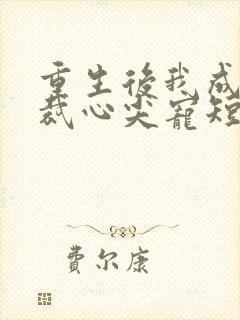 重生後我成
裁心尖寵短
費尔康